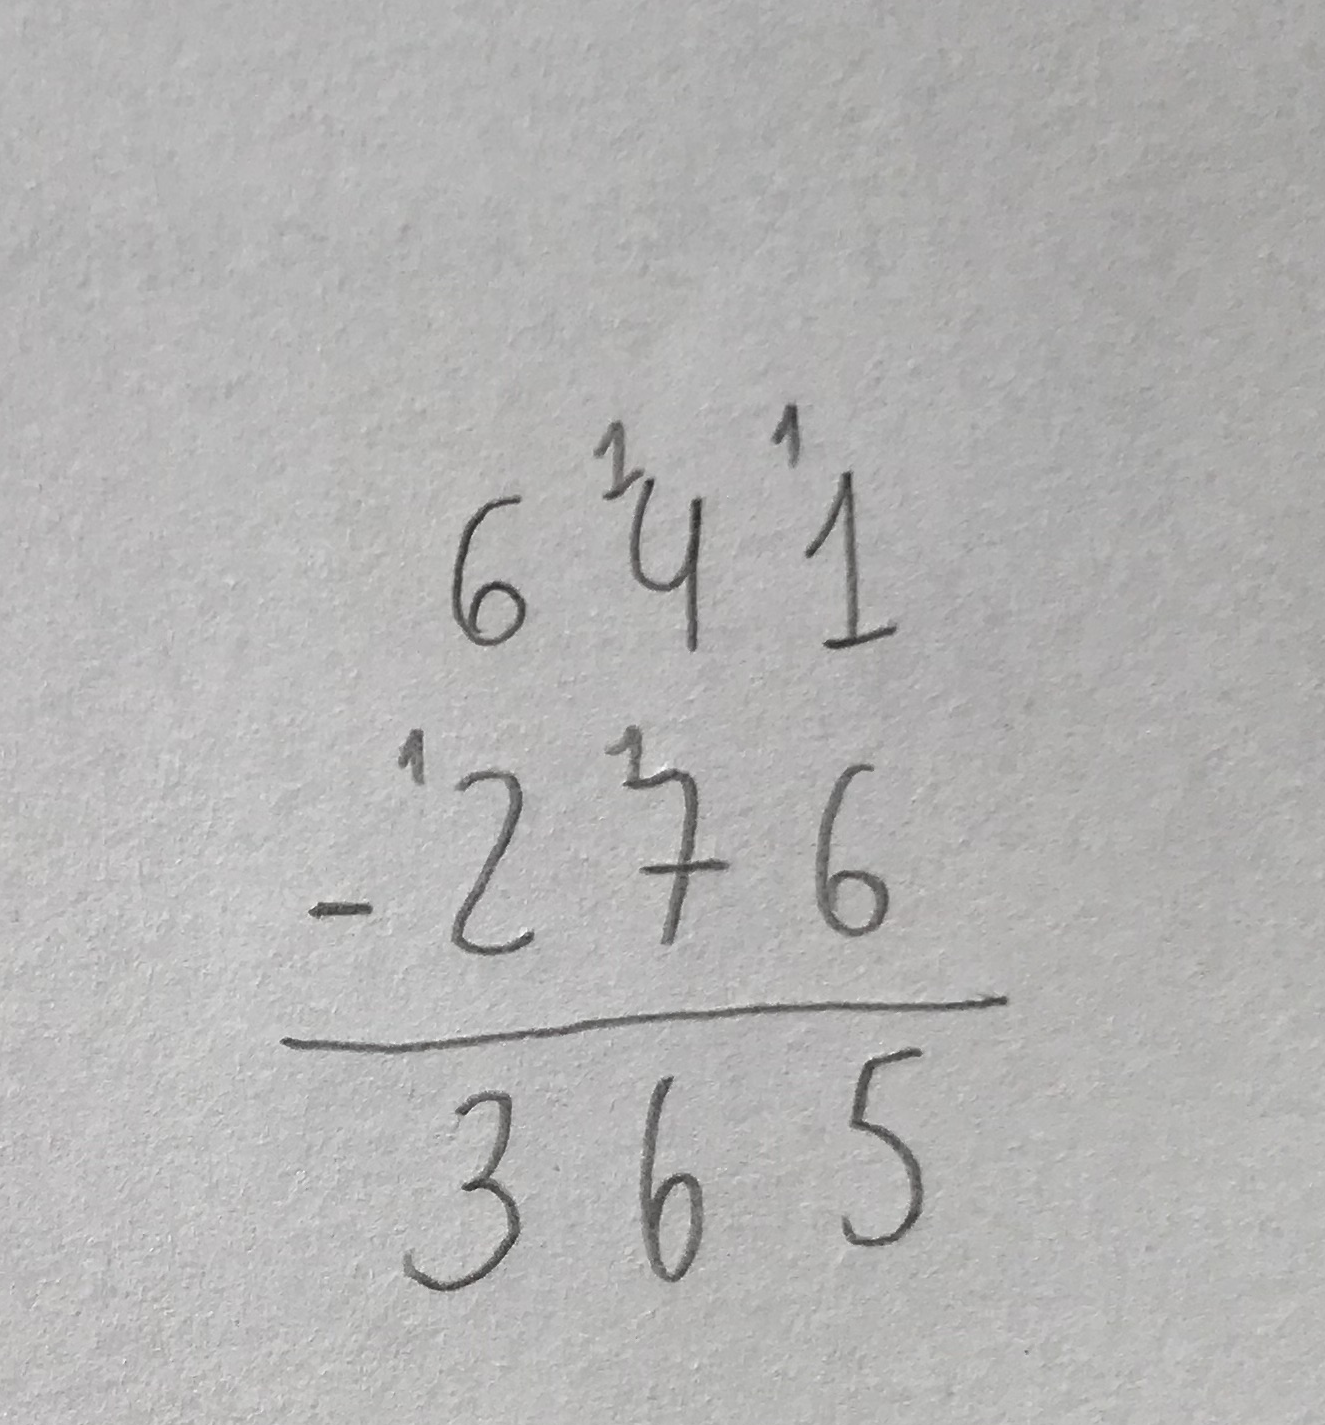 6 ¹4 ¹1
- ¹2 ¹7 6
3 6 5